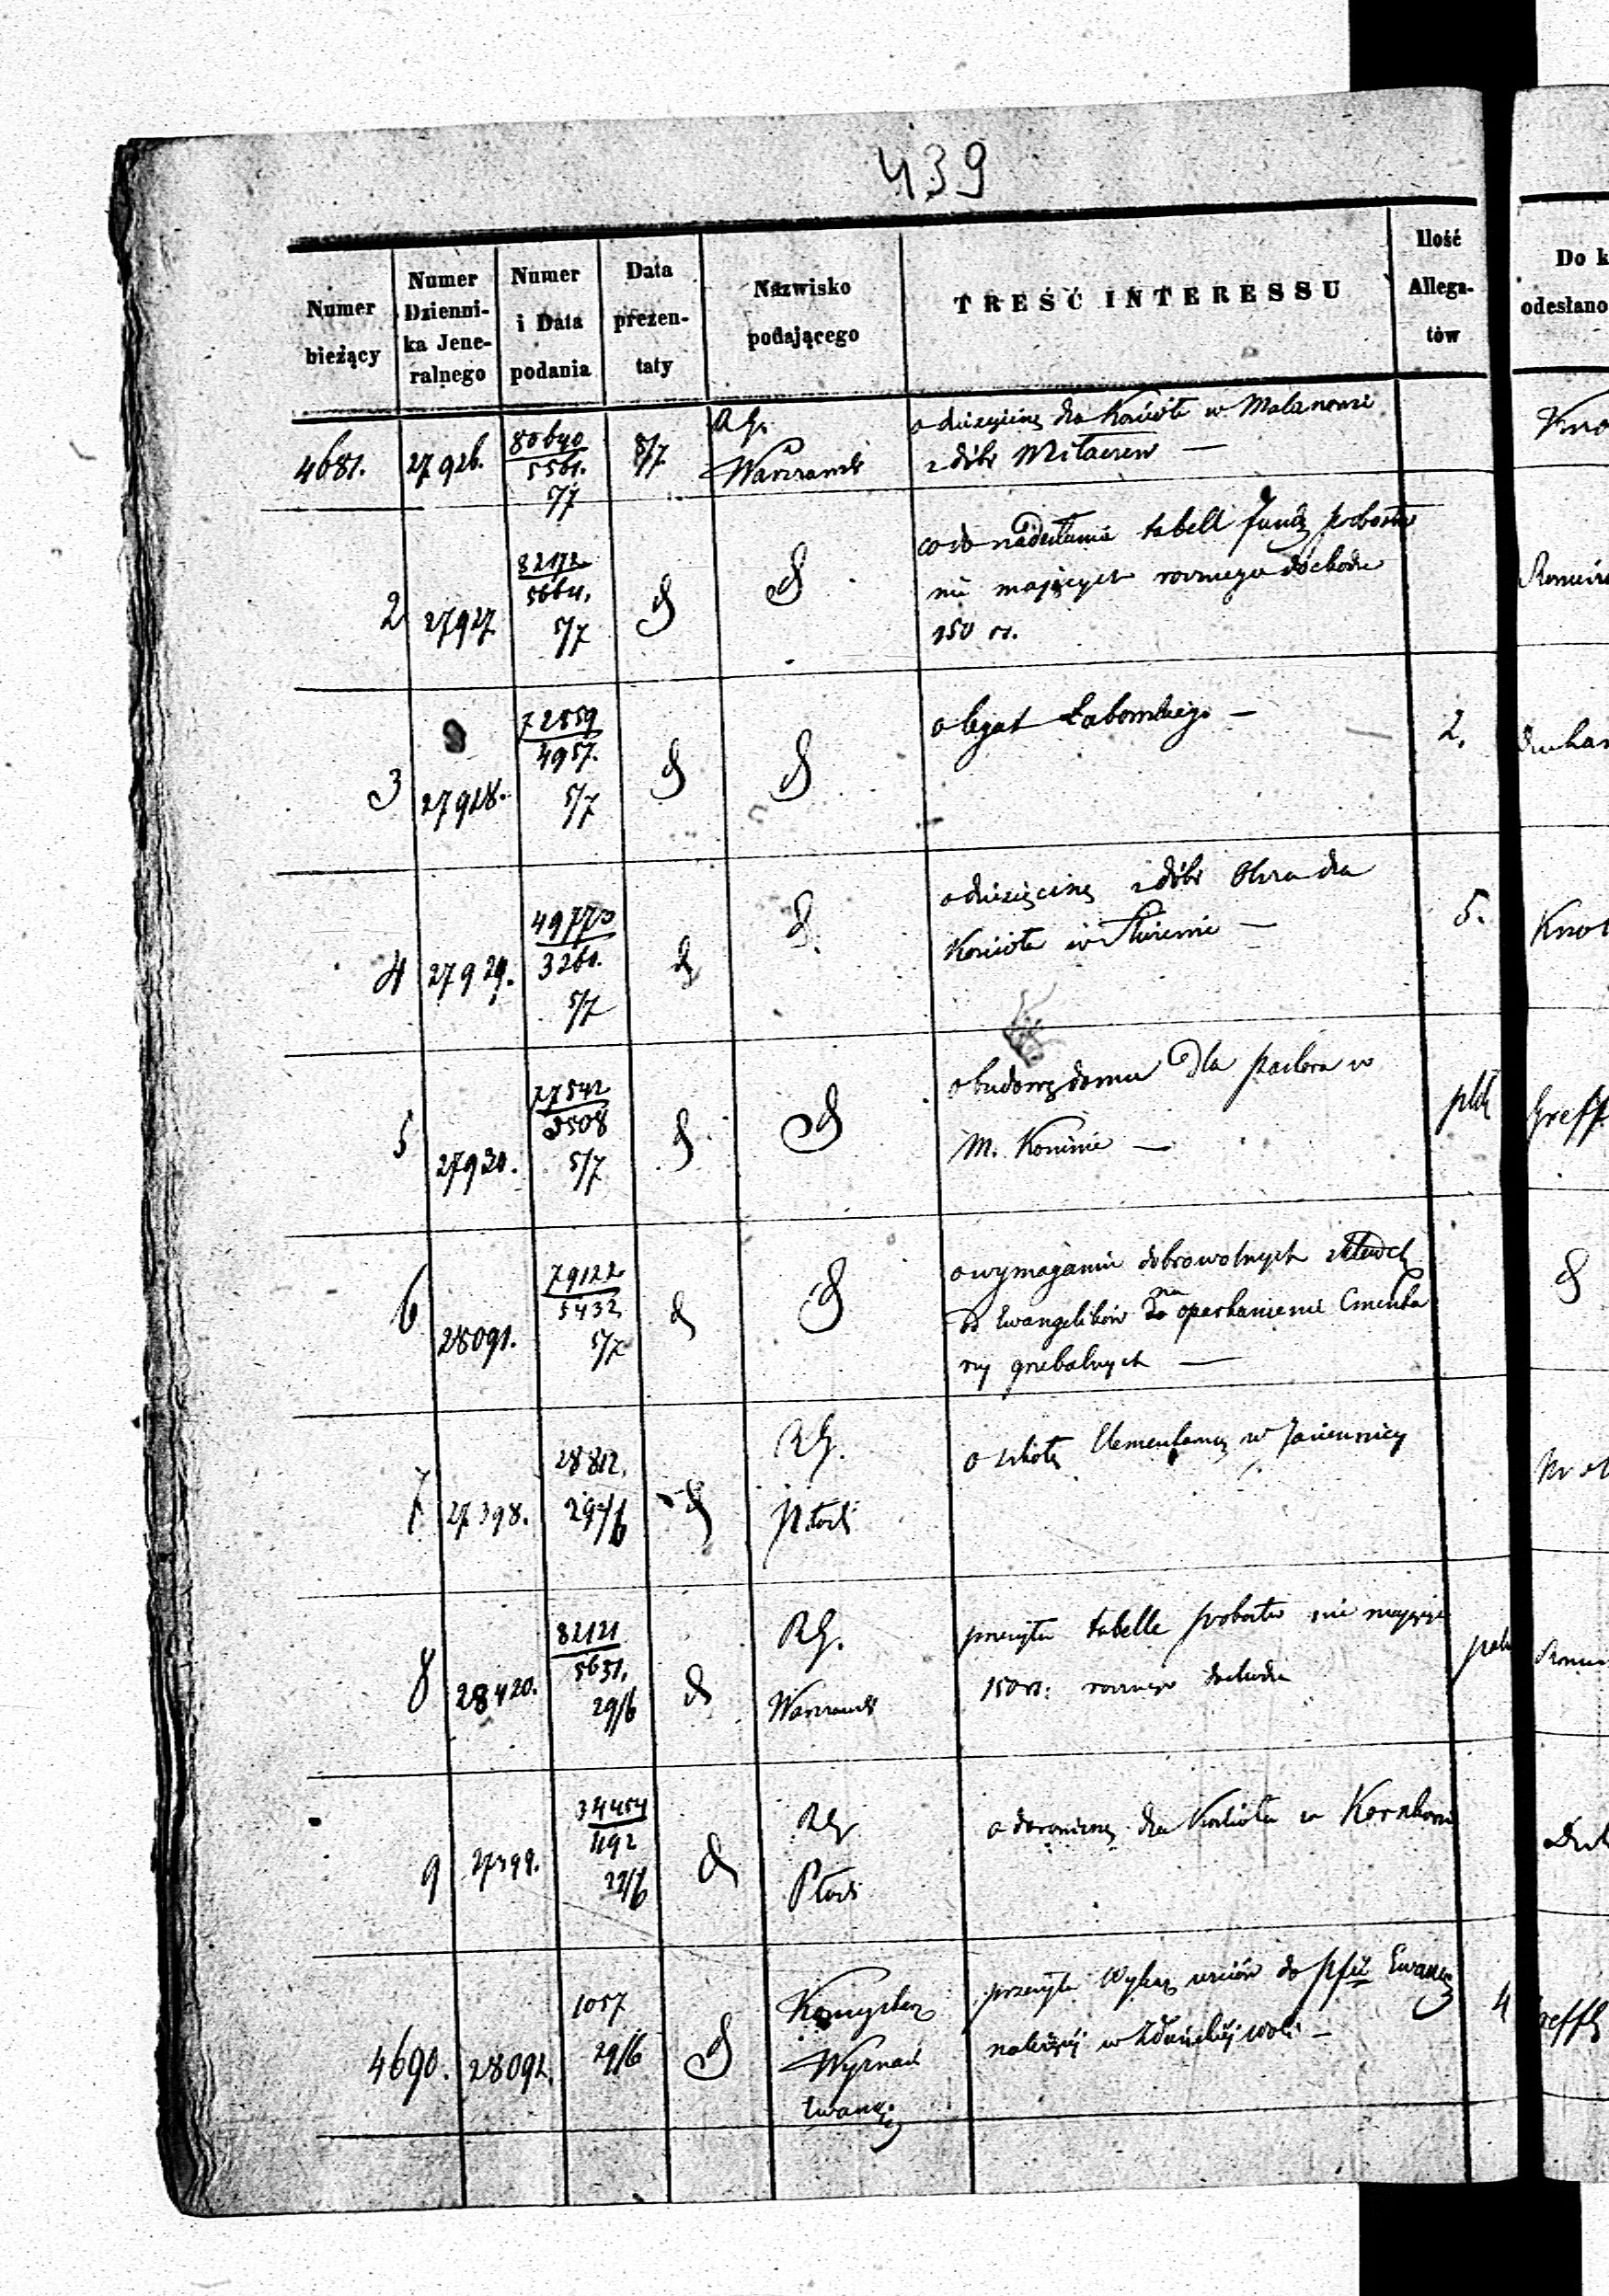 439
Numer bieżący
Numer Dzienni-ka Jene-ralnego
Numer i Data podania
Data prezen-taty
Nazwisko podającego
TREŚĆ INTERESSU
Ilość Allega-tów
Do k
odesłano
4681. 27926. 80640
5561.
5/7
8/7
RG.
Warszawsk
o dziesięcinę dla Kościoła w Malanowie
z dóbr Miłaczew —
2 27927
82172
5664.
5/7
d d
co do nadesłania tabell fund probostw
nie mających rocznego dochodu
150 rs.
3 27928.
72559
4957.
5/7
d d
o legat —
2.
4 27929.
49770
3260.
5/7
d d
o dziesięcinę z dóbr dla
Kościoła w —
5.
5 27930.
77542
3508
5/7
d d
o budowę domu dla pastora w
M. Koninie —
plik
Greff.
6 28091.
79122
5432
5/7
d d
o wymaganiu dobrowolnych składek
od Ewangelików na oparkanienie Cmenta
rzy grzebalnych —
d
7 27398.
28812.
29/6
d
RG.
Płock
o szkołę Elementarną w
8 28420.
82121
5631.
29/6
d
RG.
Warszawsk
przesyła tabelle probostw nie mając
150 rs. rocznego dochodu
9 27399.
34454
1192
22/6
d
RG
Płock
o darowiznę dla Kościoła w
4690. 28092.
1057
29/6
d
Konsystorz
Wyznań
Ewang.
przesyła Wykaz uczniów do
należący w Zduńskiej woli —
4